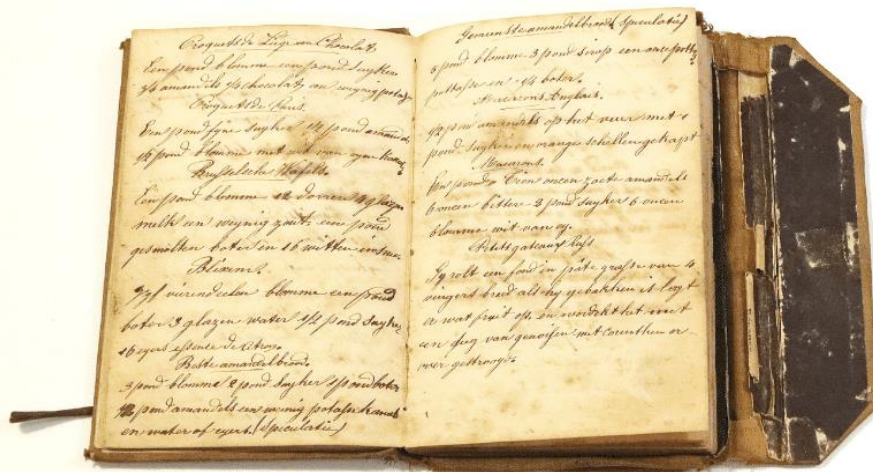 Croquets de Liège au Chocolat
Een pond blomme een pond suyker
1/4 amandels 1/4 chocolat en weynig potas
Croquets de Paris.
Een pond fyne suyker 1/2 pond
1/2 pond blomme met wit van eyer
Brusselsche Wafels
Een pond blomme 12 dorren 4 glazen
melk een weynig zout een pond
gesmolten boter in 16 witten
vyf vierendeelen blomme een pond
boter 3 glazen water 1/2 pond suyker
16 eyers essence de citroen
Beste amandelbrood
3 pond blomme 2 pond suyker 1 pond boter
1/2 pond amandels een weinig potasse
en water of eyers. (Speculatie)
Gemeenste amandelbrood (Speculatie)
3 pond blomme 3 pond sirop een once
pottasse en 1/4 boter.
Macarons Anglais.
1/2 pond amandels op het vuer met 1
pond suyker en orange schellen gekapt
Macarons.
Een pond tien oncen zoete amandels
6 oncen bitter 3 pond suyker 6 oncen
blomme wit van ey.
Petits gateaux
Gy rolt een fond in pâte grasse van 4
vingers breed als hy gebakken is legt
er wat fruit op en wordekt het met
een deeg van genoisen met corenthen er
over gestrooyt.